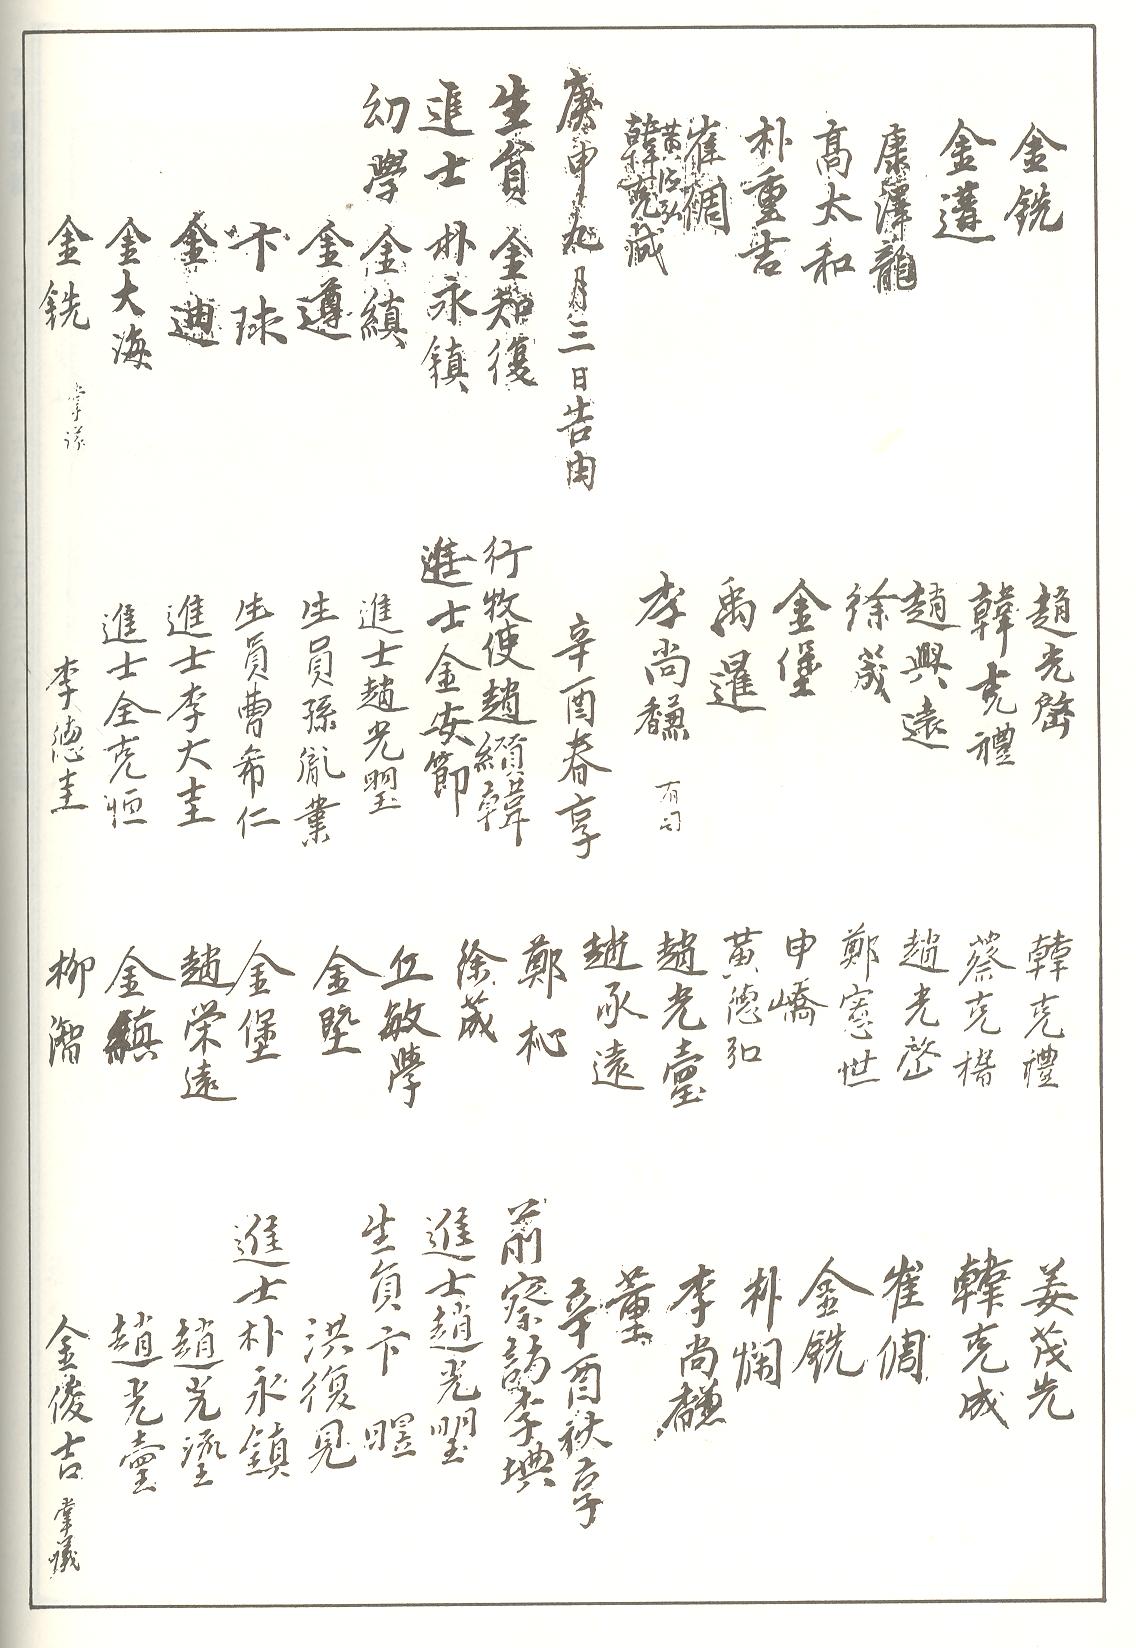 金銑
金遘
康澤龍
高太和
朴重吉
崔倜
黃德弘
韓克誠
庚申九月三日告由
生員 金知復
進士 朴永鎮
幼學 金縝
金遵
卞球
金迪
金大海
金銑 掌議
趙光
韓克禮
趙興遠
徐葳
金堡
禹暹
李尚馦 有司
辛酉春享
行牧使趙纘韓
進士金安節
進士趙光瑿
生員孫胤業
生員曹希仁
進士李大圭
進士全克恒
李德圭
韓克禮
蔡克楷
趙光
鄭憲世
申嶠
黃德弘
趙光臺
趙承遠
鄭杺
徐葳
丘敏學
金墍
金堡
趙榮遠
金縝
柳潪
姜茂先
韓克成
崔倜
金銑
朴憪
李尚馦
董
辛酉秋享
前察訪李㙉
進士趙光瑿
生員卞
洪復見
進士朴永鎮
趙光
趙光臺
金俊吉 掌議